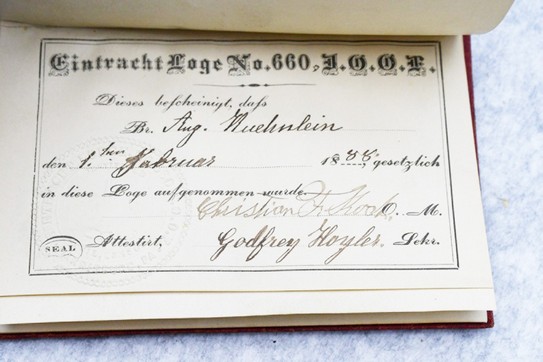 Eintracht Loge No. 660, I.O.O.F.
Dieses bescheinigt, dass
Br. Aug. Kuehnlein
den 1. ten Februar 1888, gesetzlich
in diese Loge aufgenommen wurde.
Christian F. O. M.
SEAL Attestirt, Godfrey Hoyler. Sekr.